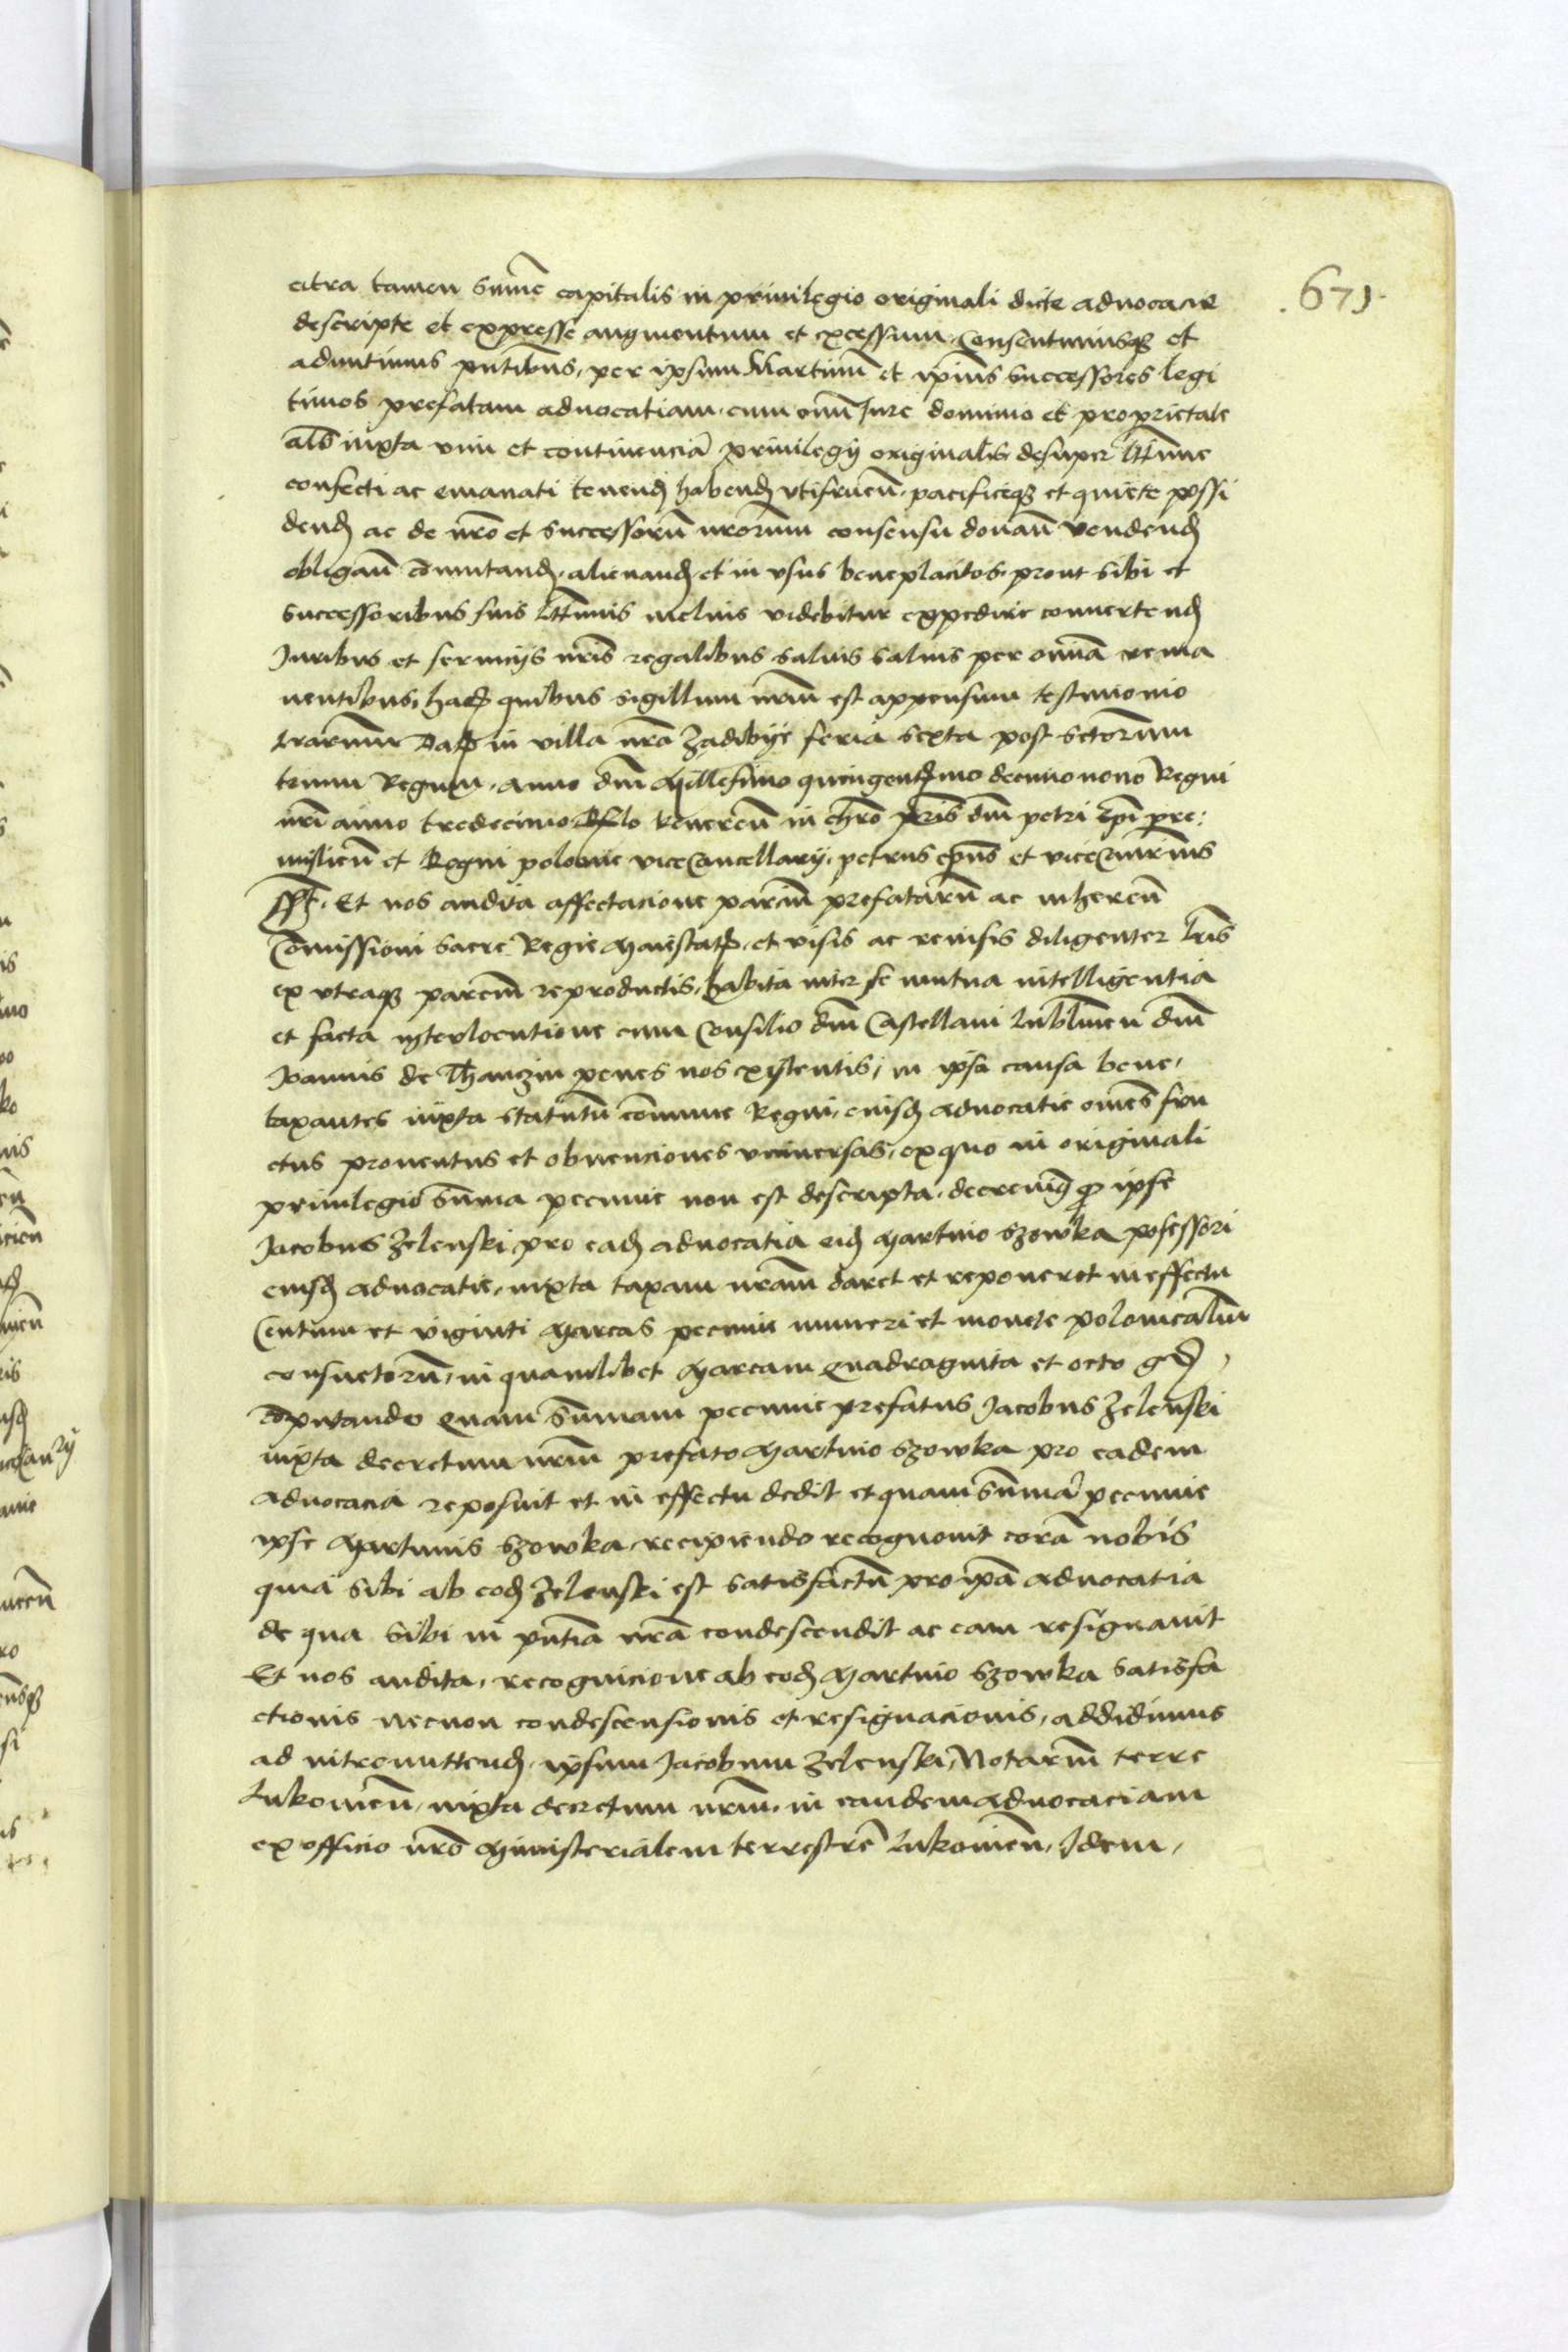 671
citra tamen sum̄e capitalis in privilegio originali dicte advocacie
descripte et expresse augmentum et excessum, Consentimusq3 et
admittimus pn̄tibus, per ipsum Martinū et ip̄ius successores legi
timos prefatam advocatiam, cum om̄i Jure dominio et proprietate
al̄s iuxta vim et continenciā privilegij originalis desuper l̄ttime
confecti ac emanati tenend̄ habend̄ utifruen̄, pacificeq3 et quiete possi
dend̄ ac de nr̄o et successorū nrōrum consensu donan̄ vendend̄
obligan̄ com̄utand̄, alienand̄, et in usus beneplacitos, prout sibi et
successoribus suis l̄ttimis melius videbitur expedire convertend̄
Juribus et serviciis nr̄is regalibus salvis salvis per omniā rema
nentibus, har̄ quibus sigillum nr̄um est appensum testimonio
lr̄arum Dat̄ in villa nrā Zadibÿe feria sexta post sctōrum
trium Regum, Anno dn̄i Millesimo quingent̄mo decimonono Regni
nr̄i anno tredecimo Rl̄o Reveren̄ in chrō pr̄is dn̄i petri ep̄i pre:
mislien̄ et Regni polonie viceCancellarij, petrus ep̄us et viceCan̄rius
sst̄. Et nos audita affectacione parciū prefatarū ac inheren̄
Com̄issioni sacre Regie Maiestat̄, et visis ac revisis diligenter lr̄is
ex utraq3 parcm̄ reproductis, habita inter se mutua intelligentia
et facta interlocutione cum Consilio dn̄i Castellani lublinen̄ dn̄i
Joannis de Thanczin penes nos existentis, in ipsa causa bene,
taxantes iuxta statutū com̄une Regni, eiusd̄ advocatie om̄es fru
ctus proventus et obvenciones universas, ex quo in originali
privilegio sum̄a pecunie non est descripta, decrevimq̄ qd̄ ipse
Jacobus Zelenski pro ead̄ advocatia eid̄ Martino Szowka possessori
eiusd̄ advocatie, iuxta taxam nrām daret et reponeret in effectu
Centum et viginti Marcas pecunie numeri et monete polonicaliū
consuetorū, in quamlibet Marcam Quadraginta et octo gr̄,
cop̄utando Quam Sum̄am pecunie prefatus Jacobus Zelenski
iuxta decretum nrm̄ prefato Martino Szowka pro eadem
advocacia reposuit et in effectu dedit et quam sum̄ā pecunie
ipse Martinus Szowka, recipiendo recognovit corā nobis
quia sibi ab eod̄ Zelenski est satisfactū pro ip̄a advocatia
de qua sibi in pn̄tia nrā condescendit ac eam resignavit
Et nos audita, recognicione ab eod̄ Martino Szowka satisfa
ctionis necnon condescensionis et resignacionis, addidimus
ad intromittend̄, ipsum Jacobum Zelenski, Notariū terre
lukovien̄, iuxta decretum nrm̄, in eandem advocaciam
ex officio nrō Ministerialem terrestrē lukovien̄, Idem,